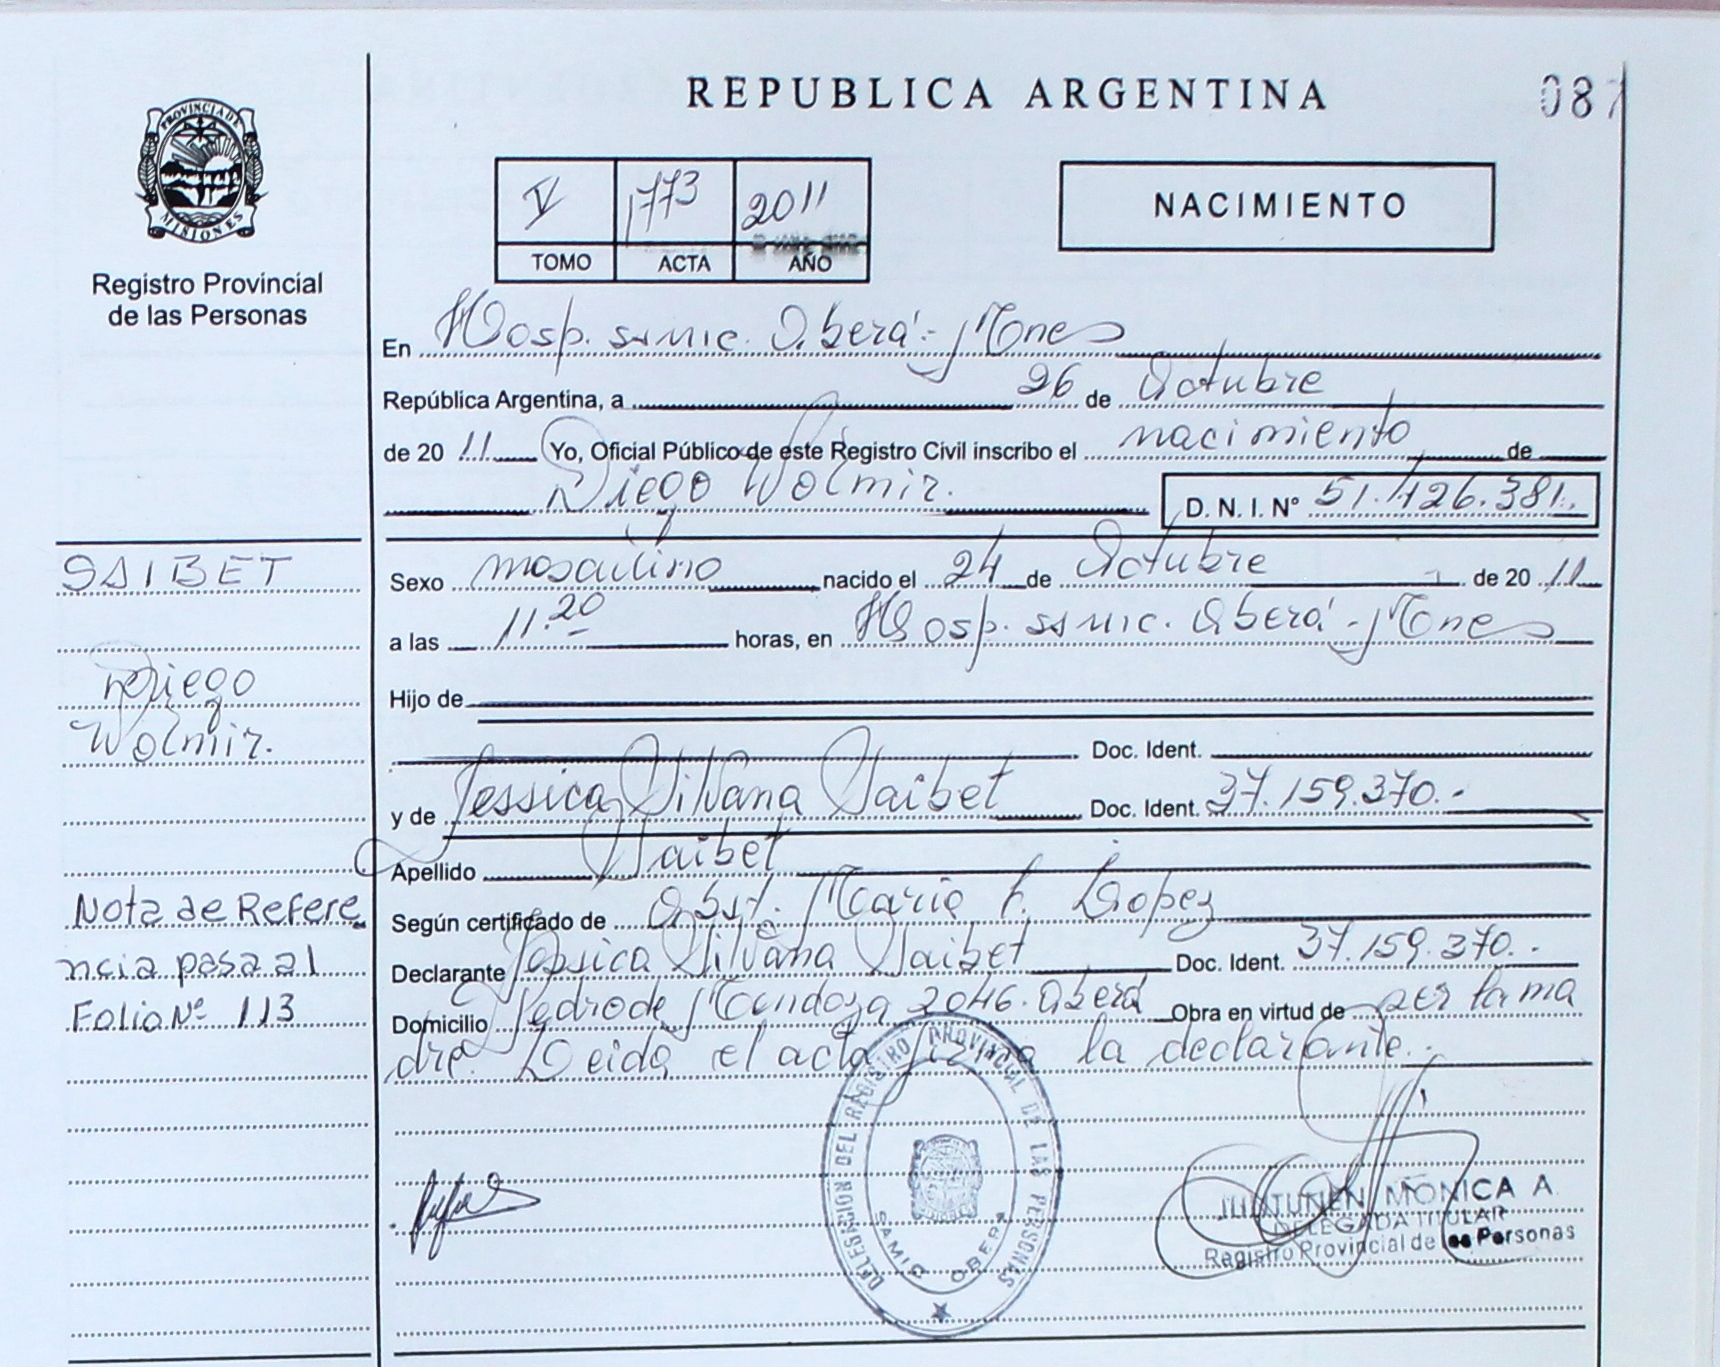 REPUBLICA ARGENTINA
087
PROVINCIA DE MISIONES
Registro Provincial
de las Personas
V 1773 2011
TOMO ACTA AÑO
NACIMIENTO
En Hosp. SAMIC. Oberá - Mnes
República Argentina, a 26 de Octubre
de 2011 Yo, Oficial Público de este Registro Civil inscribo el nacimiento de
Diego Wolmir. D. N. I. Nº 51.126.381.
SAIBET
Diego
Wolmir.
Nota de Refere
ncia pasa al
Folio Nº 113
Sexo masculino nacido el 24 de Octubre de 2011
a las 11.20 horas, en Hosp. SAMIC. Oberá - Mnes
Hijo de
Doc. Ident.
y de Jessica Silvana Saibet Doc. Ident. 37.159.370.-
Apellido Saibet
Según certificado de Obst. Maria Lopez
Declarante Jessica Silvana Saibet Doc. Ident. 37.159.370.-
Domicilio Pedro de Mendoza 2046. Oberá Obra en virtud de ser la ma
dre. Leida el acta firma la declarante.
DELEGACION DEL REGISTRO PROVINCIAL DE LAS PERSONAS
SAMIC OBERA
MONICA A.
DELEGADA TITULAR
Registro Provincial de las Personas